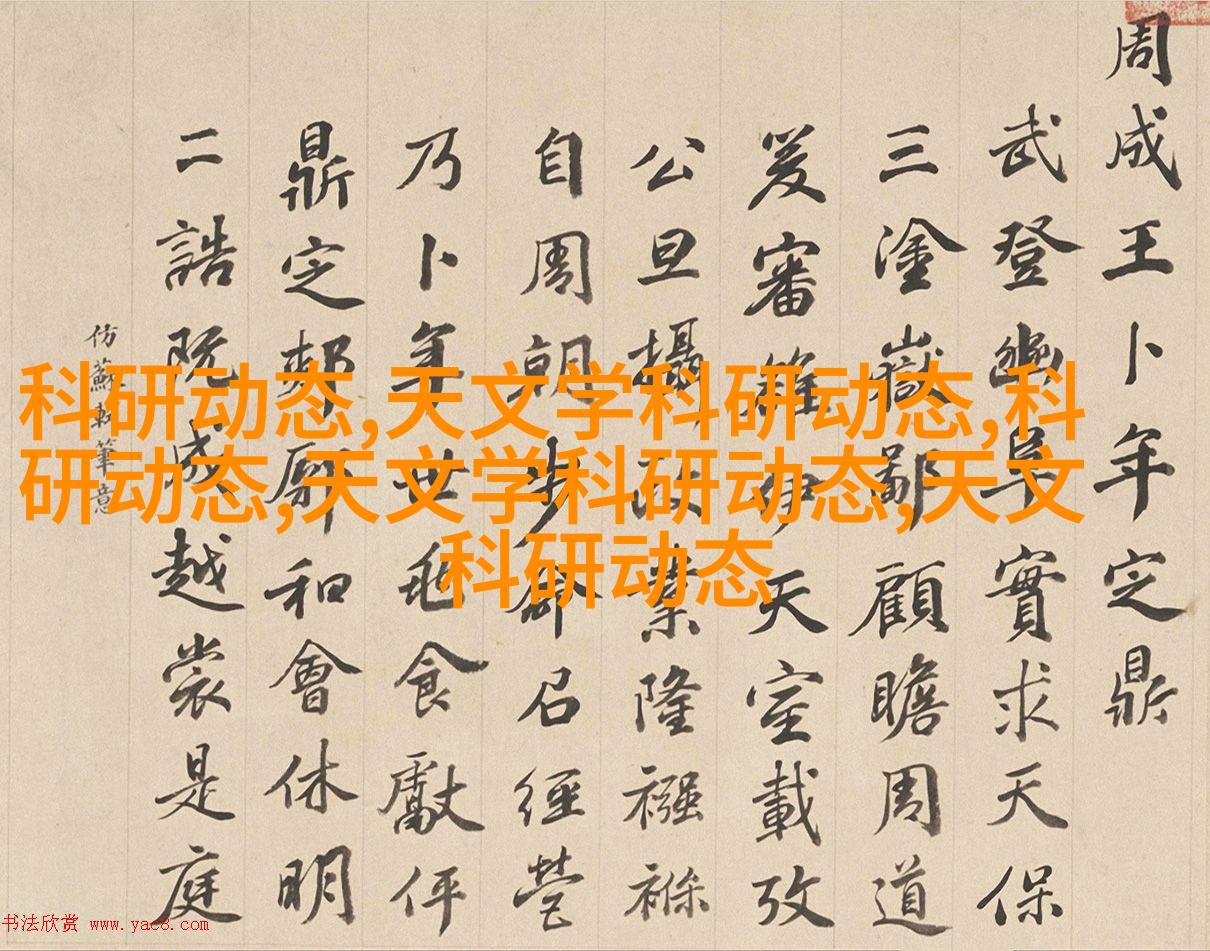 周成王卜年定鼎
武登豳阜實求天保
三塗嶽鄙顧瞻周道
爰審雒伊天室載攷
公旦攝政業隆襁褓
自周朝步命召經營
乃卜年世龜食獻伻
鼎定郟鄏和會休明
二誥既成越裳是庭
仿蘇軾筆意
科研动态,天文学科研动态,科
研动态,天文学科研动态,天文
科研动态
书法欣赏 www.yac8.com